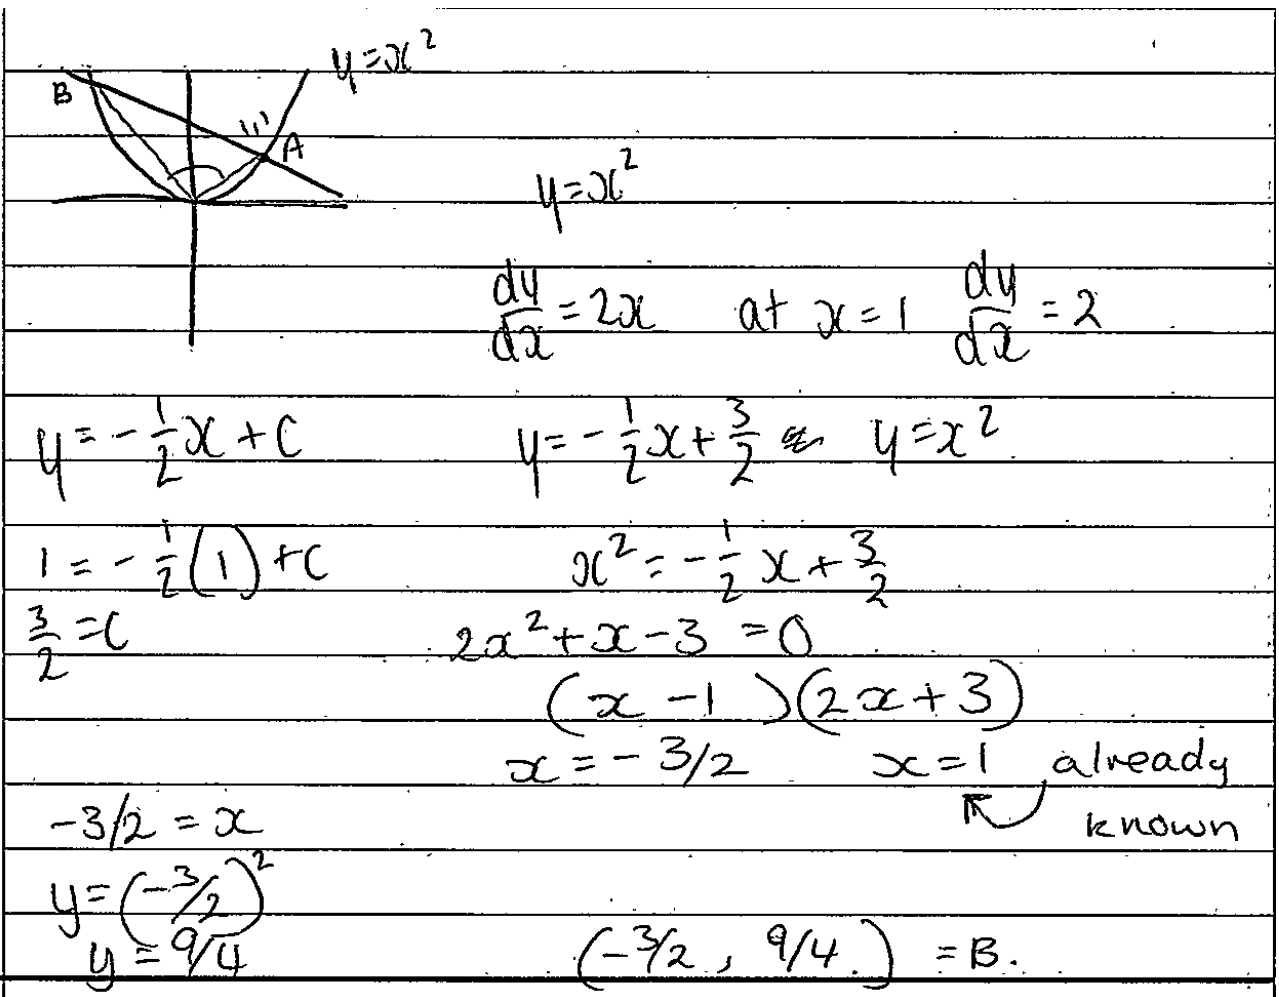 y=x²
B
1,1
A
y=x²
dy/dx = 2x at x=1 dy/dx = 2
y = -1/2 x + C
y = -1/2 x + 3/2 y = x²
1 = -1/2 (1) + C
x² = -1/2 x + 3/2
3/2 = C
2x² + x - 3 = 0
(x - 1)(2x + 3)
x = -3/2 x = 1 already
known
-3/2 = x
y = (-3/2)²
y = 9/4
(-3/2, 9/4) = B.